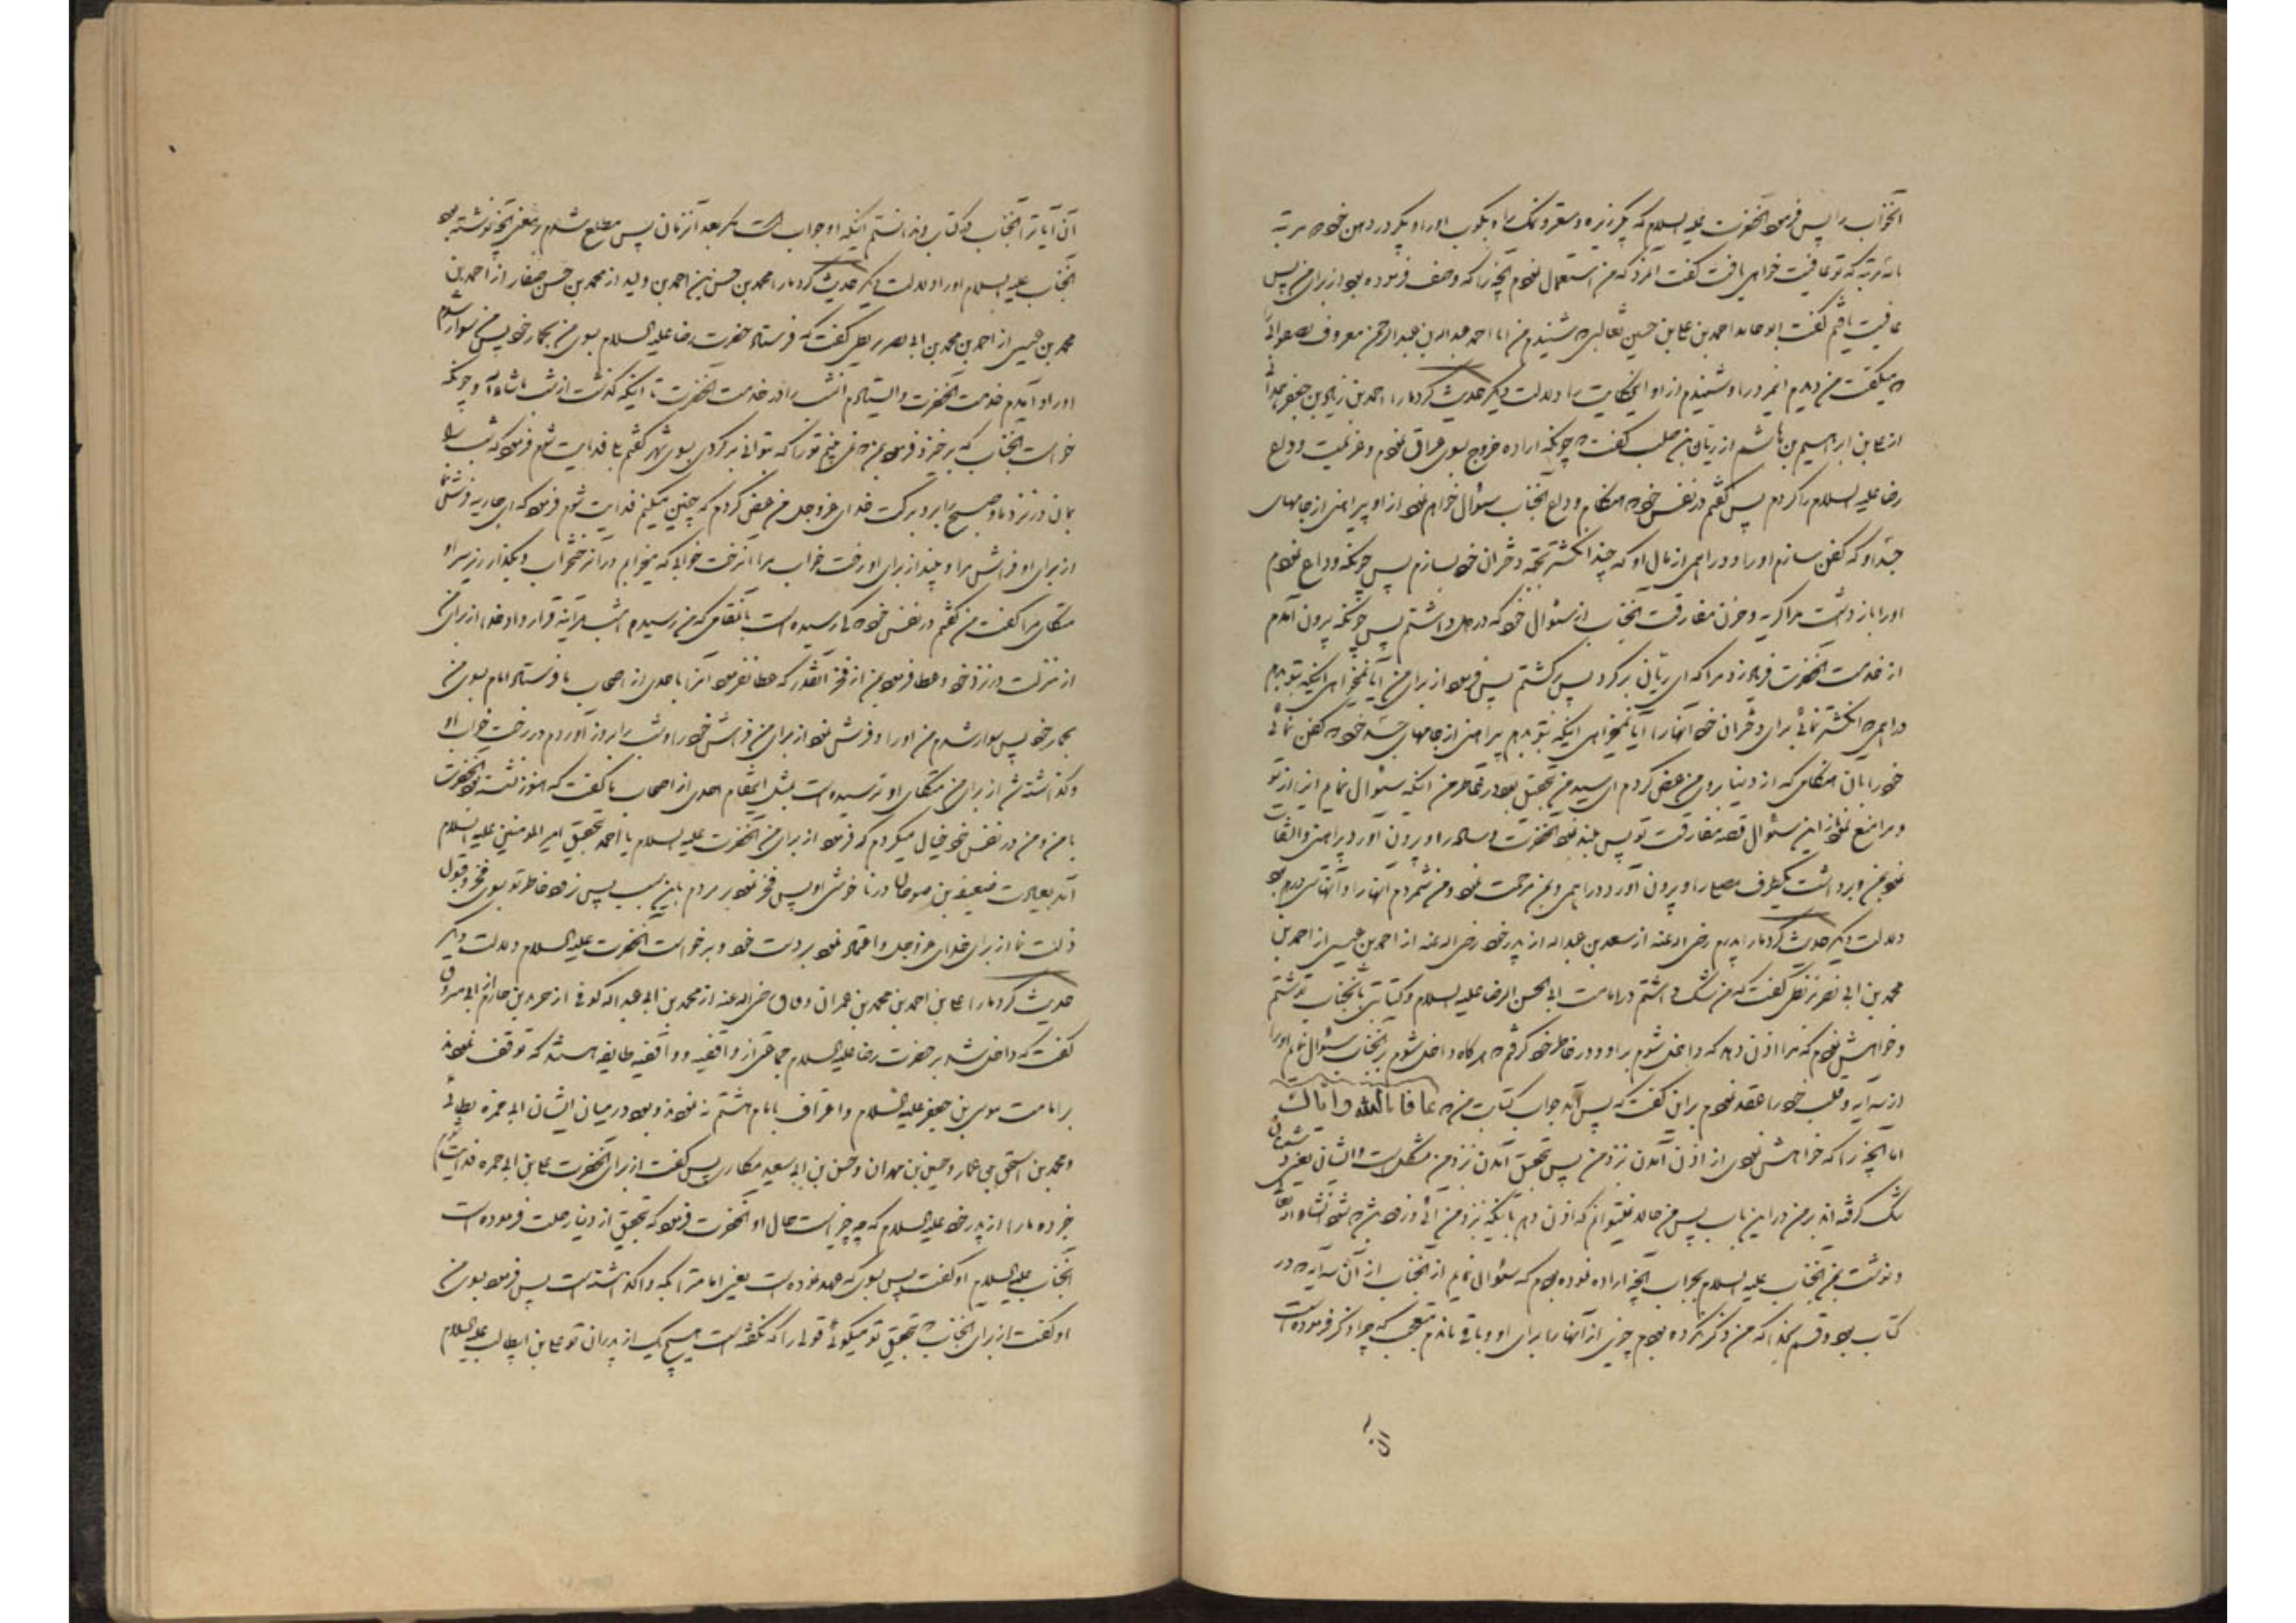 انخواب را پس فرمود آنحضرت علیه السلام که بگیر زیره و سعتر و نمک را و بکوب او را و بگیر در دهن خود دو مرتبه
یا سه مرتبه که تو عافیت خواهی یافت گفت آنمرد که من استعمال نمودم آنچه را که وصف فرموده بود از برای من پس
عافیت یافتم گفت ابو حامد احمد بن علی بن حسین ثعالبی که شنیدم من ابا احمد عبدالله بن عبدالرحمن معروف بصفوانی
که میگفت من دیدم اینمرد را و شنیدم از او این حکایت را و دلالت دیگر حدیث کرد ما را احمد بن زیاد بن جعفر همدانی
از علی بن ابراهیم بن هاشم از ریان بن صلت گفت که چونکه اراده خروج بسوی عراق نمودم و عزیمت وداع
رضا علیه السلام را کردم پس گفتم در نفس خود که هنگام وداع آنجناب سؤال خواهم نمود از او پیراهنی از جامهای
جسد او که کفن سازم او را و دراهمی از مال او که چند انگشتر بجهة دختران خود بسازم پس چونکه وداع نمودم
او را باز داشت مرا گریه و حزن مفارقت آنجناب از سئوال خود که در دل داشتم پس چونکه بیرون آمدم
از خدمت آنحضرت فریاد زد مرا که ای ریان برگرد پس برگشتم پس فرمود از برای من آیا نمیخواهی اینکه بتو بدهم
دراهمی که انگشتر نمائی برای دختران خود آنها را آیا نمیخواهی اینکه بتو بدهم پیراهنی از جامهای جسد خود که کفن نمائی
خود را بان هنگامی که از دنیا بروی من عرض کردم ای سید من بتحقیق بود در خاطر من اینکه سئوال نمایم اینرا از تو
و مرا منع نمود از این سئوال قصه مفارقت تو پس بلند نمود آنحضرت وساده را و بیرون آورد پیراهنی و القا
نمود بمن و برداشت یکطرف مصلا را و بیرون آورد دراهمی و بمن مرحمت نمود و من شمردم آنها را و آنها سی درهم بود
دلالت دیگر حدیث کرد ما را پدرم رضی الله عنه از سعد بن عبدالله از پدر خود رضی الله عنه از احمد بن عیسی از احمد بن
محمد بن ابی نصر بزنطی گفت که من شک داشتم در امامت ابی الحسن الرضا علیه السلام و کتابتی بآنجناب نوشتم
و خواهش نمودم که مرا اذن دهد که داخل شوم بر او و در خاطر خود گرفتم که هرگاه داخل شوم بر آنجناب سئوال نمایم او را
از سه آیه و قلب خود را عقد نمودم بر این گفت که پس آمد جواب کتاب من که عافانا الله وایاک
اما آنچه را که خواهش نمودی از اذن آمدن نزد من پس بتحقیق آمدن نزد من مشکل است و ایشان یعنی دشمنان
تنگ گرفته اند بر من در این باب پس من حالا نمیتوانم که اذن دهم باینکه نزد من آئی و زود باشد که بشود انشاء الله تعالی
و نوشت بمن آنجناب علیه السلام بجواب آنچه اراده نموده بودم که سئوال نمایم از آنجناب از آن سه آیه که در
کتاب بود و قسم بخدا که من ذکر نکرده بودم چیزی از آنها را برای او و باقی ماندم متعجب که چرا ذکر فرموده است
آن آیات را آنجناب در کتاب و ندانستم اینکه او جواب است مگر بعد از زمان پس مطلع شدم بر معنی آنچه نوشته بود
آنجناب علیه السلام او را و دلالت دیگر حدیث کرد ما را محمد بن حسن بن احمد بن ولید از محمد بن حسن صفار از احمد بن
محمد بن عیسی از احمد بن محمد بن ابی نصر بزنطی گفت که فرستاد حضرت رضا علیه السلام بسوی من بحمار خود پس من سوار شدم
او را و آمدم خدمت آنحضرت و ایستادم آنشب را در خدمت آنحضرت تا اینکه گذشت از شب ما شاء الله و چونکه
خواست آنجناب که برخیزد فرمود بمن که نمی بینم تو را که بتوانی برگردی بسوی شهر گفتم بلی فدایت شوم فرمود که شب را
بمان در نزد ما و صبح را برو ببرکت خدای عزوجل من عرض کردم که چنین میکنم فدایت شوم فرمود که ای جاریه فرش نما
از برای او فراش مرا و بینداز برای او رخت خواب مرا آنرخت خوابی که میخوابم در آن رختخواب و بگذار زیر سر او
متکای مرا گفت من گفتم در نفس خود که کی رسیده است بآنمقامی که من رسیدم امشب هرآینه قرار داد خدا از برای من
از منزلت در نزد خود و عطا فرمود بمن از فخر آنقدر که عطا نفرمود آنرا باحدی از اصحاب ما فرستاد امام بسوی من
بحمار خود پس سوار شدم من او را و فرش نمود از برای من فراش خود را و شب را بروز آوردم در رخت خواب او
و گذاشته شد از برای من متکای او و نرسیده است بمثل اینمقام احدی از اصحاب ما گفت که هنوز نشسته بود آنحضرت
با من و من در نفس خود خیال میکردم که فرمود از برای من آنحضرت علیه السلام یا احمد بتحقیق امیر المومنین علیه السلام
آمد بعیادت صعصعة بن صوحان در ناخوشی او پس فخر نمود بر مردم باین سبب پس نرود خاطر تو بسوی فخر و قبول
ذلت نما از برای خدای عزوجل و اعتماد نمود بر دست خود و برخواست آنحضرت علیه السلام و دلالت دیگر
حدیث کرد ما را علی بن احمد بن محمد بن عمران دقاق رضی الله عنه از محمد بن ابی عبدالله کوفی از جریر بن حازم از ابی مسروق
گفت که داخل شد بر حضرت رضا علیه السلام جماعتی از واقفیه و واقفیه طایفه هستند که توقف نمودند
بر امامت موسی بن جعفر علیه السلام و اعتراف بامام هشتم ننمودند و بود در میان ایشان ابی حمزه بطائنی
و محمد بن اسحق بن عمار و حسین بن مهران و حسن بن ابی سعید مکاری پس گفت از برای آنحضرت علی بن ابی حمزه فدایت شوم
خبر ده ما را از پدر خود علیه السلام که چه چیز است حال او آنحضرت فرمود که بتحقیق از دنیا رحلت فرموده است
آنجناب علیه السلام او گفت پس بسوی که عهد نموده است یعنی امامت را بکه واگذاشته است پس فرمود بسوی من
او گفت از برای آنجناب که بتحقیق تو میگوئی قولی را که نگفته است هیچ یک از پدران تو علی بن ابیطالب علیه السلام